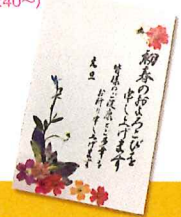 40〜)
初春のおよろこびを
申し上げます
皆様のご健康とご多幸を
お祈り申し上げます
元旦